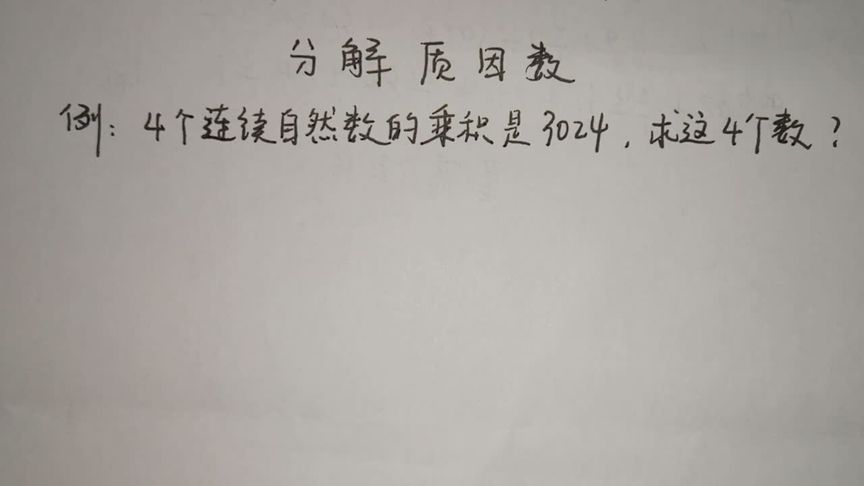 分解质因数
例：4个连续自然数的乘积是3024，求这4个数？